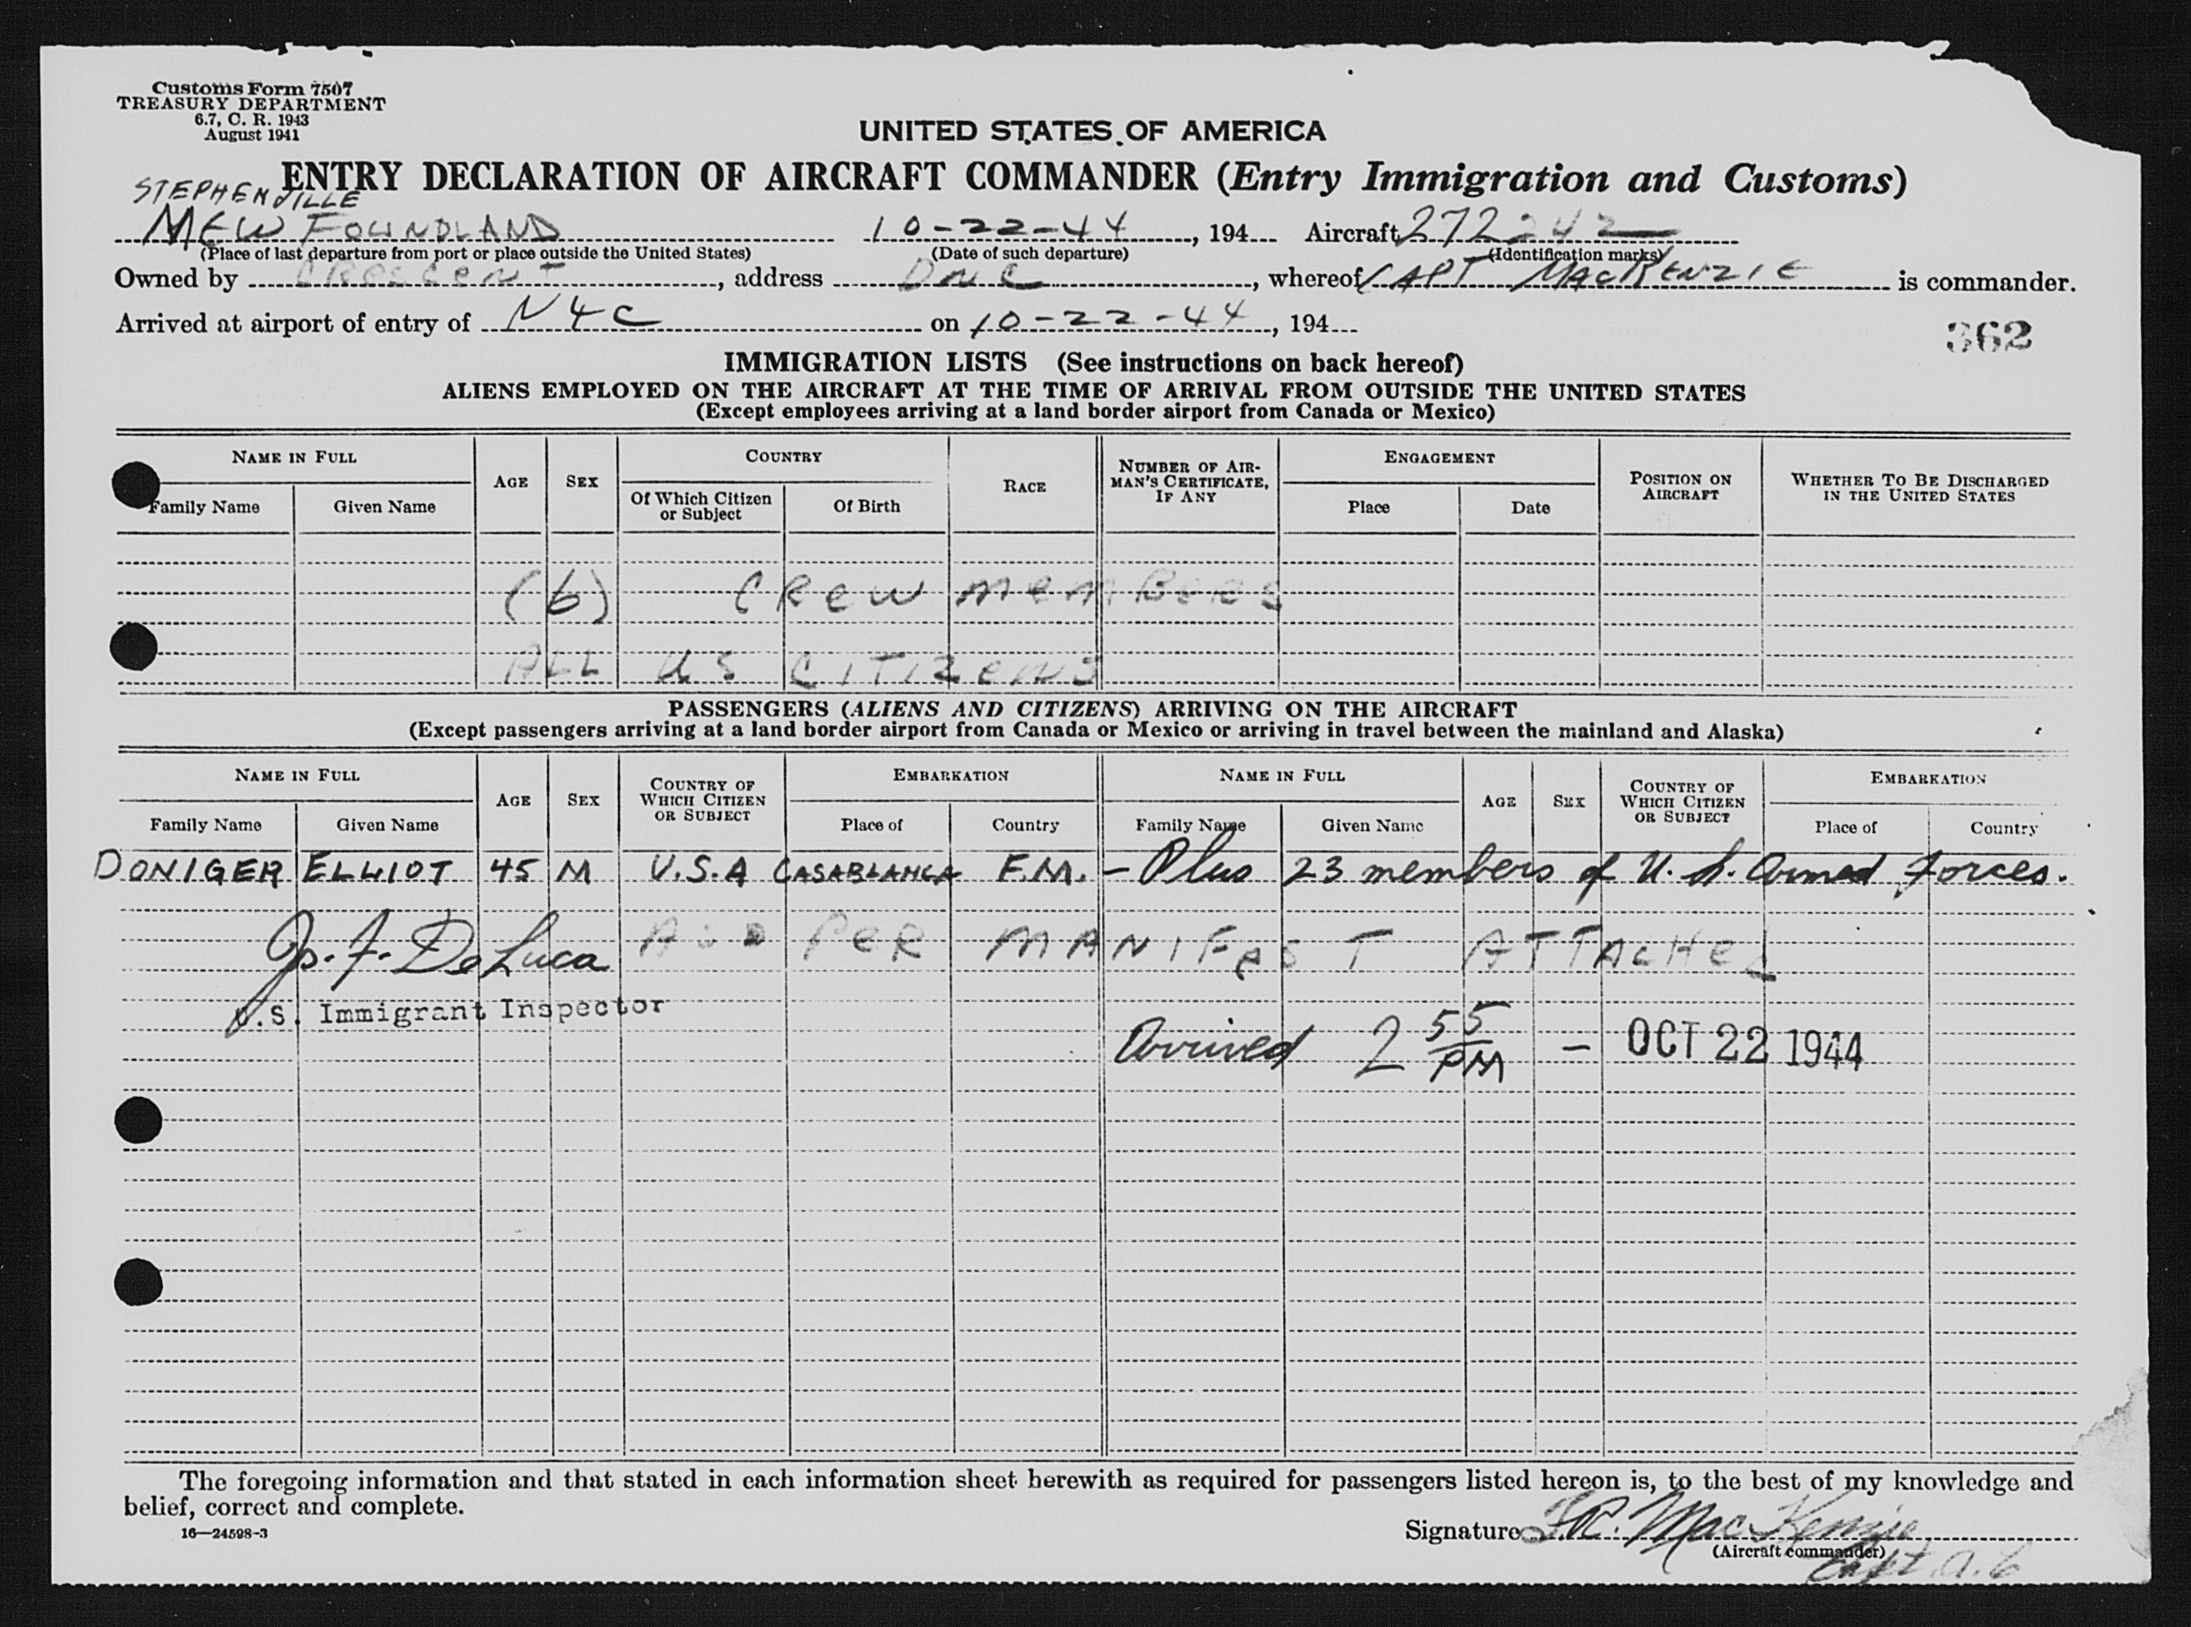 Customs Form 7507
TREASURY DEPARTMENT
6.7, C. R. 1943
August 1941
UNITED STATES OF AMERICA
ENTRY DECLARATION OF AIRCRAFT COMMANDER (Entry Immigration and Customs)
STEPHENVILLE
NEW FOUNDLAND 10-22-44, 194 Aircraft 272242
(Place of last departure from port or place outside the United States) (Date of such departure) (Identification marks)
Owned by CRESCENT, address , whereof CAPT MACKENZIE is commander.
Arrived at airport of entry of NYC on 10-22-44, 194
362
IMMIGRATION LISTS (See instructions on back hereof)
ALIENS EMPLOYED ON THE AIRCRAFT AT THE TIME OF ARRIVAL FROM OUTSIDE THE UNITED STATES
(Except employees arriving at a land border airport from Canada or Mexico)
NAME IN FULL AGE SEX COUNTRY RACE NUMBER OF AIRMAN'S CERTIFICATE, IF ANY ENGAGEMENT POSITION ON AIRCRAFT WHETHER TO BE DISCHARGED IN THE UNITED STATES
Family Name Given Name Of Which Citizen or Subject Of Birth Place Date
(6) CREW MEMBERS
ALL US CITIZENS
PASSENGERS (ALIENS AND CITIZENS) ARRIVING ON THE AIRCRAFT
(Except passengers arriving at a land border airport from Canada or Mexico or arriving in travel between the mainland and Alaska)
NAME IN FULL AGE SEX COUNTRY OF WHICH CITIZEN OR SUBJECT EMBARKATION NAME IN FULL AGE SEX COUNTRY OF WHICH CITIZEN OR SUBJECT EMBARKATION
Family Name Given Name Place of Country Family Name Given Name Place of Country
DONIGER ELLIOT 45 M U.S.A CASABLANCA F.M. - Plus 23 members of U. S. Armed Forces.
Jos. F. DeLuca PER MANIFEST ATTACHED
U.S. Immigrant Inspector
Arrived 2 55 PM - OCT 22 1944
The foregoing information and that stated in each information sheet herewith as required for passengers listed hereon is, to the best of my knowledge and
belief, correct and complete.
16—24598-3
Signature MacKenzie
(Aircraft commander)
Capt. A.C.